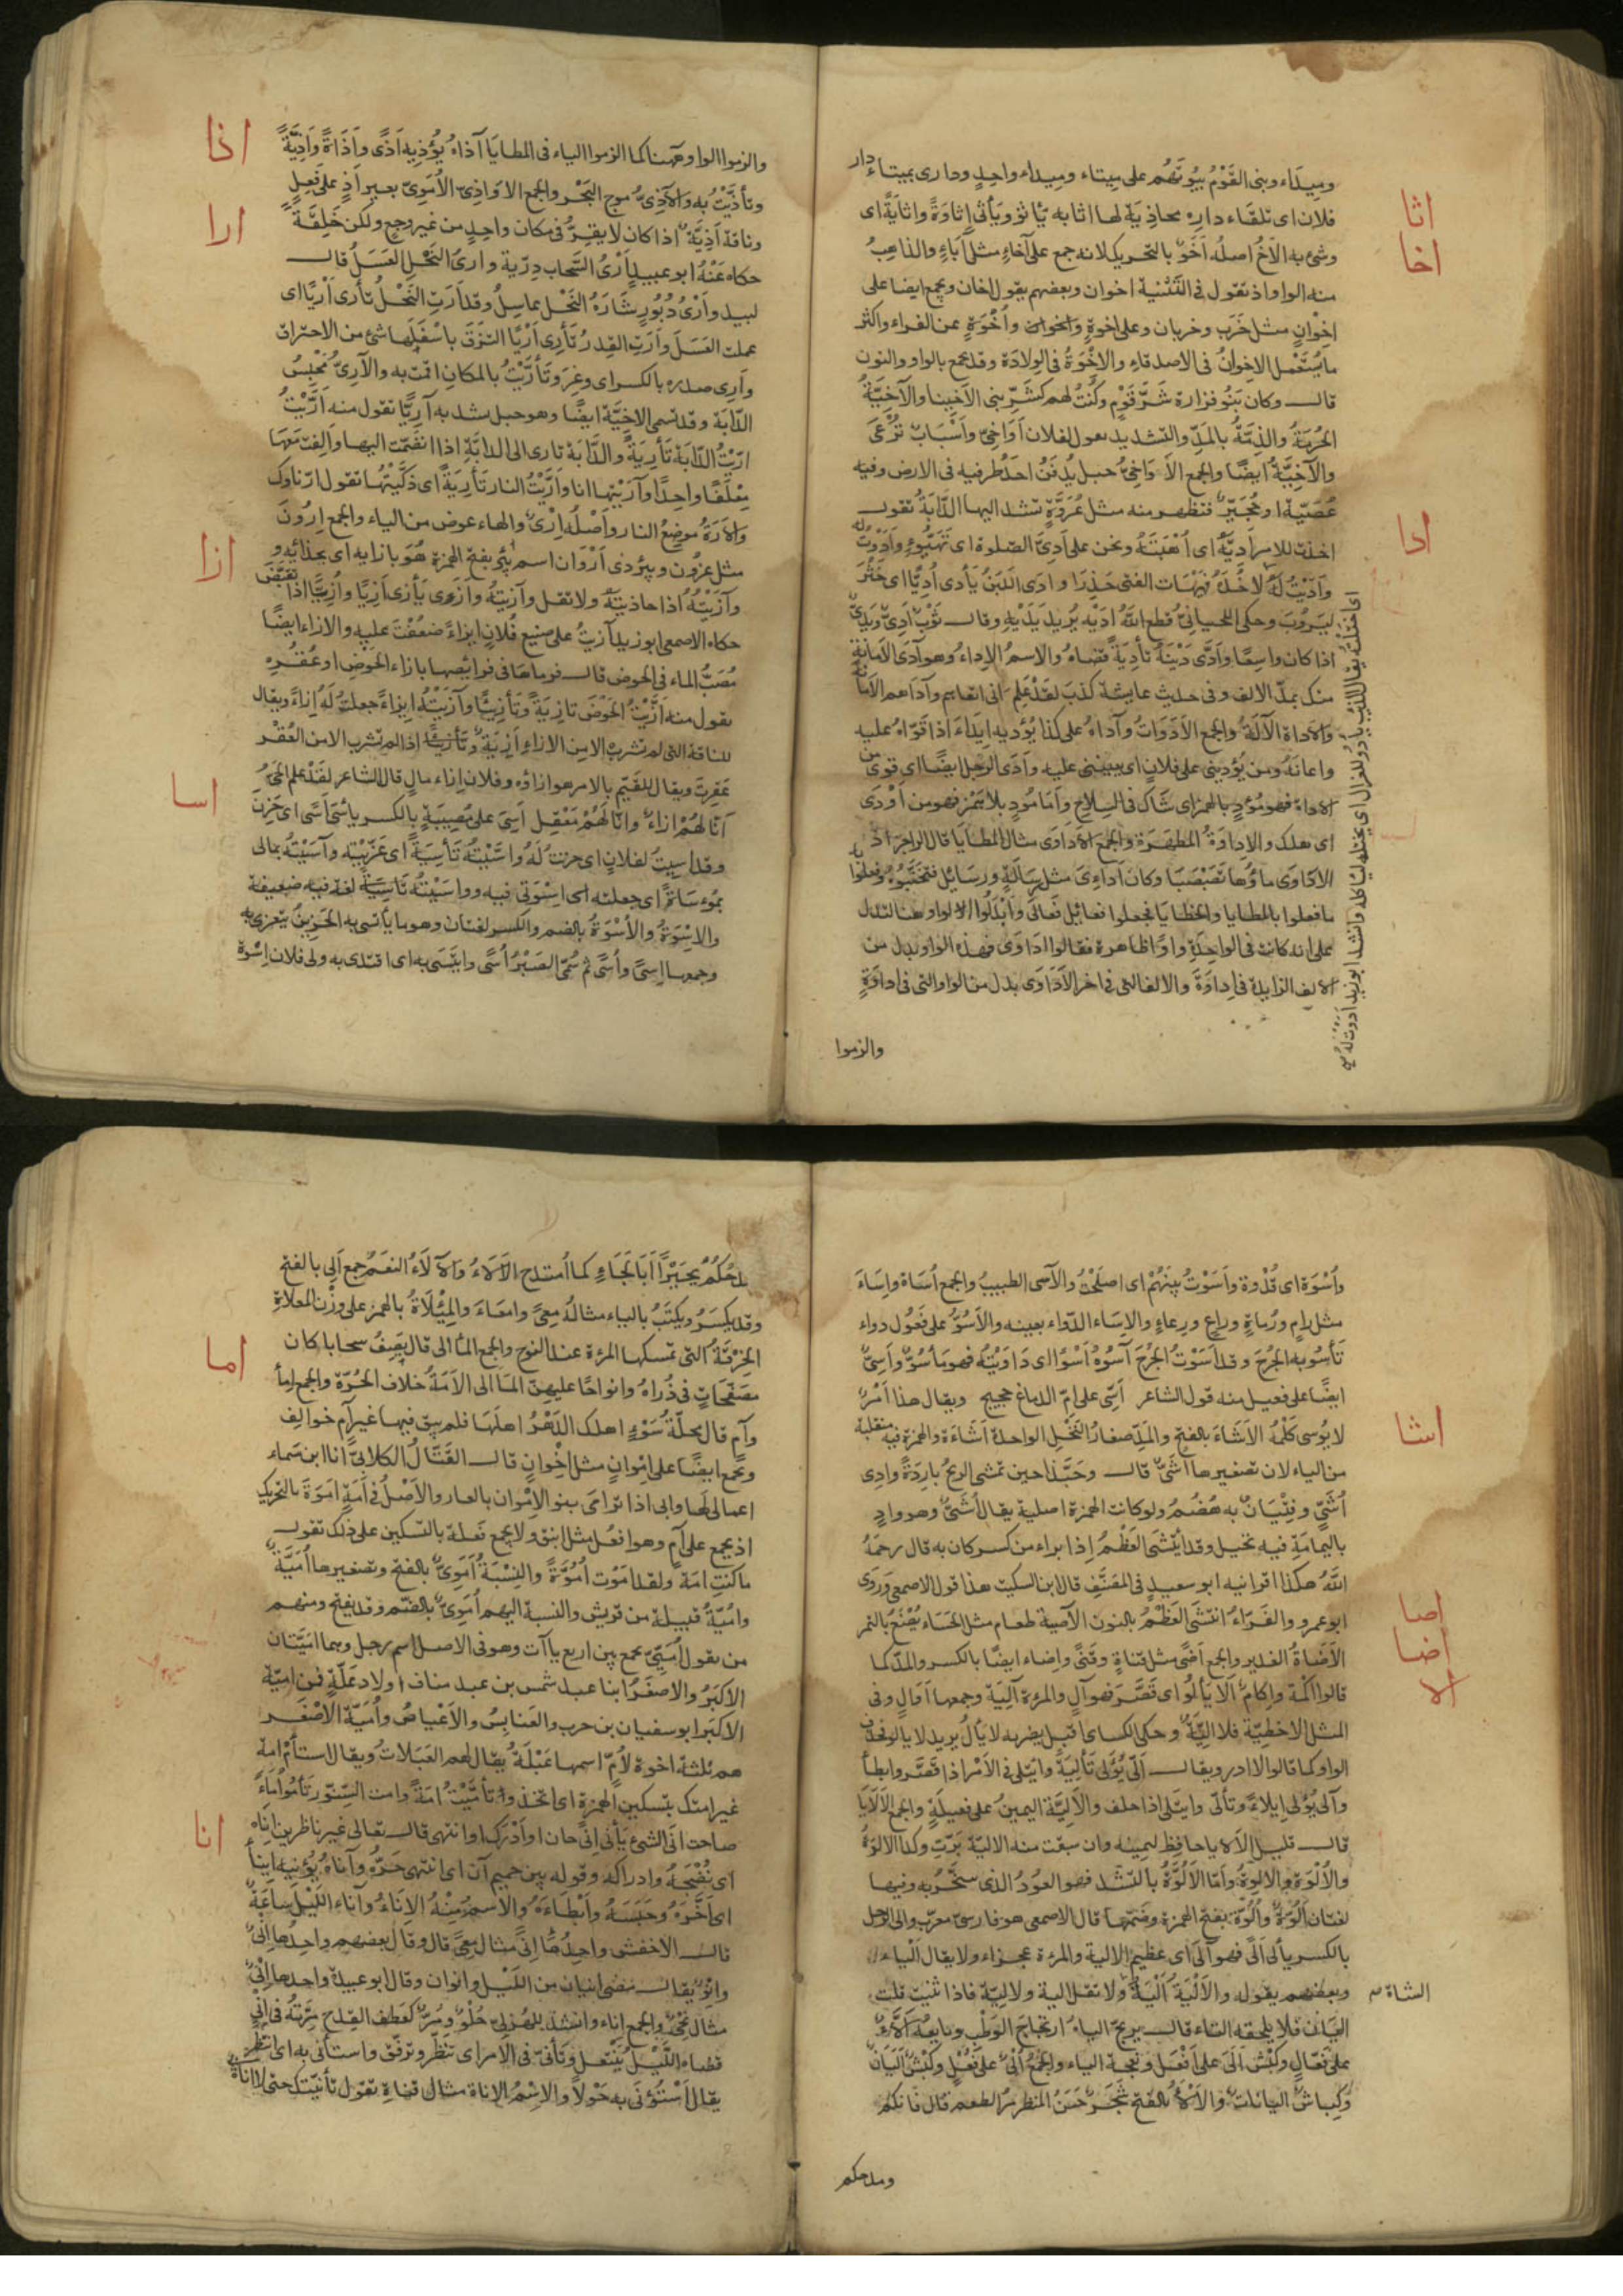 وميداء وبنى القوم بيوتهم على ميتاء وميداء واحدٍ ودارى بميتاء دار
اثا
فلان اى تلقاء داره محاذية لها اثا به يأثو ويأثى إثاوةً واثايةً اى
اخا
وشى به الأخُ اصلُه اَخَوٌ بالتحريك لانه جمع على آخاءٍ مثل آباءٍ والذاهبُ
منه الواو اذ تقول فى التثنية اخوان وبعضهم يقول اخان ويجمع ايضا على
اِخْوانٍ مثل خَرَب وخربان وعلى اخوةٍ واخوان وأُخْوَةٍ عن الفراء واكثر
ما يُستعمل الاخوانُ فى الاصدقاءِ والاِخْوَةُ فى الوِلادَة وقد يجمع بالواو والنون
قال وكان بَنُو فزارة شَرَّ قَوْمٍ وكُنْتُ لهم كشَرِّ بنى الأخِينا والآخِيَّةُ
الحُرمَةُ والذِمّةُ بالمَدِّ والتشديد تقول لفلان أوَاخِىُّ وأسْبَابٌ تُرْعَى
والآخِيَّةُ ايضًا والجمع الأوَاخِىُّ حبل يُدفَنُ احَدُ طرفيه فى الارض وفيه
عُصَيّة او حُجَيْرٌ فتظهر منه مثل عُرْوَةٍ تشد اليها الدَّابَةُ تقول
ادا
اخذت للامر أديَّهُ اى اُهْبَتَهُ ونحن على أدِىّ الصلوة اى تَهَيُّوءٍ وأدَوْتُ له
وأدَيْتُ لَهُ لآخُذَهُ فهَيْهَات الفتى حَذِرَا وادَى اللَّبَنُ يأدى اُدِيًّا اى خَثُرَ
ليَروُبَ وحكى اللحيانىّ قطع اللهُ ادَيْه يُريد يَدَيْهِ وقال ثَوْبٌ أدِىٌّ ويَدِىٌّ
اذا كان واسِعًا وأدَّى دَيْنَهُ تأدِيَةً قضاهُ والاسمُ الاداءُ وهو آدَى للأمانة
منك بمدّ الالف وفى حديث عايشة كذبَ لقد عَلِمَ انى اتقاهم وآدَاهم للأمانة
والأداةُ الآلَةُ والجمع الأدَوَاتُ وآداهُ على كذا يُؤديه إيدَاءً اذا قَوّاهُ عليه
واعانَهُ ومن يُؤدينى على فلانٍ اى يعيننى عليه وآدَى الرجل ايضًا اى قوىَ من
الاداة فهو مُؤْدٍ بالهمز اى شَاكٍ فى السِلاح وأمّا مُودٍ بلا هَمْز فهو من أوْدَى
اى هلك والاداوَةُ المطهَرَةُ والجمع الأدَاوَى مثال المطايَا قال الراجز اذ
الأداوَى ماؤُها تَصَبْصَبَا وكان أداءِىَ مثل رِسَالَةٍ ورسَائِل فتجنَّبُوهُ وفعَلُوا به
ما فعلوا بالمطايا والخطايَا فجعلوا فعائل فَعالَى وأَبْدَلُوا الواو هنا لتدل
على انه كانت فى الواحِدَةِ واوٌ ظاهرة فقالوا ادَاوَى فهذه الواو بدل من
الالف الزايدة فى اِداوَة والالف التى فى اخر الأدَاوَى بدل من الواو التى فى اداوةٍ
والزموا
والزموا الواو ههنا كما الزموا الياء فى المطايَا آذاهُ يُؤذيه أذًى وأَذَاةً وأذِيَّةً
اذا
وتأذَّيْتُ به والآذِىُّ موج البَحْرِ والجمع الاوَاذِىّ الأُمَوِىّ بعير أذٍ على فَعِلٍ
وناقة أذِيَةٌ اذا كان لا يقِرُّ فى مكان واحدٍ من غير وجع ولكن خَلِقَةً
ارا
حكاه عنهُ ابو عبيد أرْىُ السَّحاب دِرّيَة وارىُ النَحْلِ العَسَلُ قال
لبيد وأرْىُ دُبُورٍ شَارَهُ النَحْلَ عاسِلُ وقد أرَتِ النَحْلُ تأرى أرْيًا اى
عملت العَسَلَ وأرَتِ القِدرُ تَأرِى أرْيًا التزَقَ باَسْفَلِها شئ من الاحتراق
وأرِىَ صدره بالكسر اى وغِرَ وتَأَرَّيْتُ بالمكان اقمتُ به والآرِىُّ مَحْبِسُ
الدابَة وقد تسمى الاخِيَّة ايضًا وهو حبل تشد به آرِيًّا تقول منه أرَّيْتُ
ارَّيْتُ الدّابَةَ تَأرِيَةً والدَّابَة تارى الى الدابَةِ اذا انضَمّت اليها وألِفَتْ مَعَها
مِعْلَفًا واحِدًا وآرَيْتها انا وأرَّيْتُ النارَ تَأرِيَةً اى ذَكَّيْتُها تقول ارّ نارك
والإرَةُ موضِعُ النار وأَصْلُه إرْىٌ والهاء عوض من الياء والجمع اِرُونَ
مثل عِزُون وبئر ذى أرْوَان اسم بِئرٍ بفتح الهمزة هُوَ بازايه اى بحذائه و
ازا
وآزَيْتُهُ اذا حاذيتَهُ ولا تقل وآزيتُهُ وأزَى يَأزى أزِيًا وأُزِيًّا اذا تَقبَّضَ
حكاه الاصمعى ابو زيد آزيتُ على صنيع فلانٍ ايزاءً ضعُفْتُ عليه والازاء ايضًا
مُصَبُّ الماء فى الحوض قال فرماها فى فرائصها بازاء الحوضِ او عُقُرِهِ
تقول منه أزَّيْتُ الحَوْضَ تازيَةً وتَأزِيًّا وآزَيْتُهُ ايزاءً جعلتُ لهُ إزاءً ويقال
للناقة التى لم تشرب الا من الازاءِ أزِيَةٌ وتأزيةً اذا لم تشرب الا من العُقْر
عَقِرَة ويقال للقيّم بالامر هو ازاؤه وفلان اِزاء مالٍ قال الشاعر لقد علم الحَىُّ
اسا
أنّا لهُمْ ازاءٌ وانّا لهُمْ مَعْقِل أسِىَ على مُصيبَةٍ بالكسر يأسَى أسًى اى حَزِنَ
وقد اسِيتُ لفلان اى حزنتُ لَهُ واسَّيْتُهُ تَأسِيَةً اى عَزّيْته وآسَيْتهُ بمالى
مُوءسَاةً اى جعلته اى اسْوَتى فيه وواسَيْتُهُ تَاسِيَةً لغة فيه ضعيفة
والاِسْوَةُ والأُسْوَةُ بالضم والكسر لغتان وهو ما يأتسى به الحَزِينُ يتعزى به
وجمعها اِسىً وأُسًى ثم سُمّىَ الصَبْرُ أُسًى وايتَسَى به اى اقتدى به ولى فلان اِسْوَة
اى اختله يقال الذئب يادو للغزال اى يختله لياكله وانشد ابو زيد أدوت له
وأُسْوَة اى قُدْوَة وأَسَوْتُ بينهُمْ اى اصلَحْتُ والآسى الطبيبُ والجمع أُسَاة واِسَاءٌ
مثل رامٍ ورُماةٍ وراعٍ ورِعاءٍ والاِسَاء الدّواء بعينه والأَسُوُّ على فَعُول دواء
تَأسُو به الجُرحَ وقد أَسَوْتُ الجُرْحَ آسُوُهُ أسْوًا اى دَاوَيْتُهُ فهو مأسُوٌّ وأسِىٌّ
ايضًا على فعيل منه قول الشاعر أسِىٌّ على امّ الدماغ حجيج ويقال هذا أمْرٌ
لا يُوسى كَلْمُهُ الأشَاءُ بالفتح والمَدّ صغارُ النَخْلِ الواحدة اَشاءَة والهمزة فيه منقلبة
اشا
من الياء لان تصغيرها أُشَىٌّ قال وحَبّذا حين تمشى الريحُ بارِدَةً وادِى
أُشَىٍّ وفِتْيَانٌ به هُضُمُ ولو كانت الهمزة اصلية يقال أُشَىءٌ وهو وادٍ
باليمامَةِ فيه نخيل وقد أيْتَشَى العَظْمُ اِذا براء من كسر كان به قال رحمَهُ
اللهُ هكذا اقرانيه ابو سعيدٍ فى المصَنَّفِ قال ابن السكيت هذا قول الاصمعى وروَى
ابو عمرو والفَرّاءُ انتَشَى العَظْمُ بالنون الآصية طعام مثل الحَسَاءِ يُصْنَعُ بالتمر
اصا
الأضَاةُ الغدير والجمع أضًى مثل قناةٍ وقَنًى واِضاء ايضًا بالكسر والمدّ كما
اضا
قالوا اَكَمة واِكامٌ ألا يَألُوا اى قَصَّرَ فهو آلٍ والمرءة آلِيَة وجمعها أوَالٍ وفى
الا
المثل الا حظِيَّة فلا اَليَّةٌ وحكى الكساى اقبل يضربه لا يَألُ يريد لا يالو فحذف
الواو كما قالوا لا ادر ويقال ألّى يُؤَلِّى تَألِيَةً وايتلى فى الأمْر اذا قصَّر وابطأَ
وآلى يُؤْلى اِيلاءً وتألّى وايتَلى اذا حلف والأَليَّة اليمينُ على فعيلَةٍ والجمع الأَلايَا
قال قليل الألايا حافِظ ليمينه وان سبقت منه الاليّة بَرّتِ وكذا الالوَةُ
والأُلْوَة والإلوةُ وأمّا الألُوَّةُ بالتشدّد فهو العُودُ الذى يتبَخّرُ به وفيها
لغتان اَلُوَّةٌ واُلُوَّةٌ بفتح الهمزة وضمّها قال الاصمعى هو فارسىٌّ معرّب والى الرجل
بالكسر يألى اَلًى فهو آلَى اى عظيم الالية والمرءة عجزاء ولا يقال ألْياء
وبعضهم يقوله والألْيَةُ أَلْيَةُ ولا تقل الِية ولا لِيَّة فاذا ثنّيتَ قلت
الشاة م
اليَانِ فلا يلحقه التاء قال يرتجّ اَلياهُ ارتجاجَ الوَطْب وبايعُهُ ألاّءٌ
على فعّالٍ وكَبْش آلَى على أفْعَلَ ونعجة الياء والجمعُ أُلْىٌ على فُعْلٍ وكَبْشٌ ألَيَانٌ
وكِباشٌ اليانات والألاءُ بالفتح شَجَرٌ حَسَنُ المنظر مُرّ الطعم قال فانكم
ومدحكم
مدحكُمُ بُجَيْرًا أبَا لَجَاءٍ كما اُمْتُدِحَ الألاءُ والآلاءُ النعَمُ جمع ألى بالفتح
وقد يكسَرُ ويكتَبُ بالياء مثالهُ مِعىً وامعاءَ والمِئْلَاةُ بالهمز على وزْن المعلاةِ
الخِرْقَةُ التى تمسكها المرءة عند النوح والجمع المآلى قال يَصِفُ سحابا كان
اما
مصَفّحَاتٍ فى ذُراهُ وانواحًا عليهنّ المَآلى الأمَةُ خلاف الحُرّة والجمع إمَاء
وآمٍ قال محلّةُ سَوْءٍ اهلك الدَهْرُ اهلَهَا فلم يبق فيها غير آم خوالِف
ويجمع ايضًا على اِمْوانٍ مثل اِخْوانٍ قال القَتّالُ الكلابىُّ انا ابن سَماء
اعمامى لهَا وابى اذا ترَامَى بنو الاِمْوان بالعار والأصْلُ فى أمَةٍ أَمَوَة بالتحريك
اذ يجمع على آمٍ وهو افعُل مثل اينق ولا يجمع فَعلة بالتسكين على ذلك تقول
ما كنتِ امَة ولقد امَوْتِ أُمُوَّةً والنِسْبَةُ أَمَوِىٌّ بالفتح وتصغيرها أُمَيَّةٌ
وامُيّةُ قبيلة من قريش والنسبة اليهم اُمَوِىٌّ بالضّم وقد يفتح ومنهم
من يقول اُمَيّىّ يجمع بين اربع يا آت وهو فى الاصل اسم رجل وهما امَيَّتان
الاكبَرُ والاصغَرُ ابنا عبد شمس بن عبد مناف اولاد عَلّةٍ فمن اميّة
الاكبَر ابو سفيان بن حرب والعَنابِسُ والأعْياصُ وأُميّة الأصْغر
هم ثلثة اخوة لأُمّ اسمها عَبْلَةُ يقال لهم العَبَلاتُ ويقال استأمْ امةً
غير امتك بتسكين الهمزة اى اتخذ وتأمّيْتُ امَةً وامت السّنّور تأمُوا اُمَاءً
صاحت انَى الشئ يأنى اِنًى حان او أدْرَك او انتهى قال تعالى غير ناظرين اِنَاه
انا
اى نُضْجَهُ وادراكه وقوله بين حميم آن اى انتهى حَرّهُ وآناهُ يُؤنِيه ايناءً
اى أخّرَهُ وحَبَسَهُ وأبْطاءَهُ والاسم مِنْهُ الاِنَاءُ وآناءُ اللَيْل سَاعَتهُ
قال الاخفش واحِدُها اِنًى مثال مِعًى قال وقال بعضهم واحِدُها اِنْىٌ
وانْوٌ يقال مضى انيان من اللَيْل وانوان وقال ابو عبيدة واحدها اِنْىٌ
مثال نِحْىٍ والجمع اناء وانشد للهُذلىّ حُلْوٌ ومُرٌّ كعَطف القِدح مِرَّتهُ فى اِنْىٍ
قضاه اللَّيْلُ ينتَعلُ وتَأنّى فى الأمر اى تنظّر وترفّق واستأنى به اى انتظر
يقال أسْتُؤنَى به حَوْلاً والاِسْمُ الاِناة مثال قناةٍ تقول تأنيتك حتى لا اناةَ